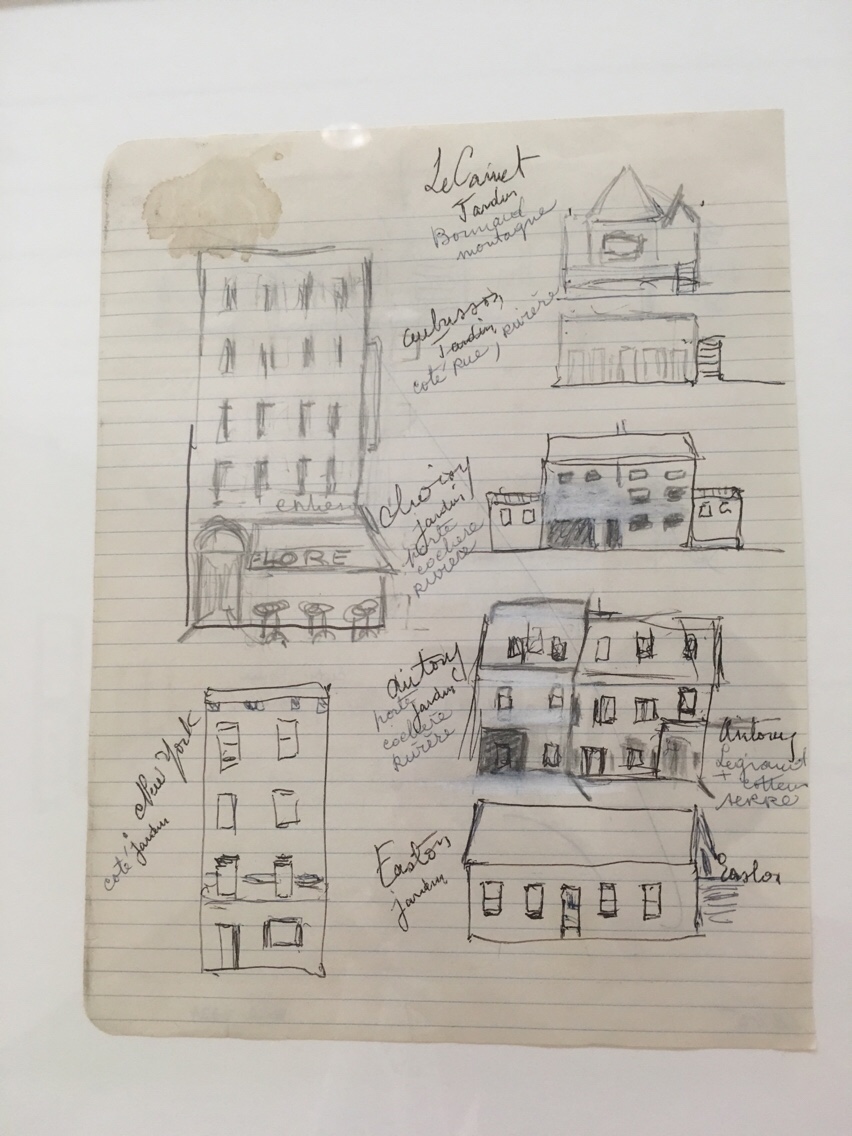 Le Cannet
Jardin
montagne
aubusson
Jardin,
coté Rue, Rivière
Choisy
Jardin
porte
cochere
Rivière
FLORE
antony
Jardin
porte
cochère
Rivière
antony
Legrand
+
serre
New York
coté Jardin
Easton
jardin
Easton